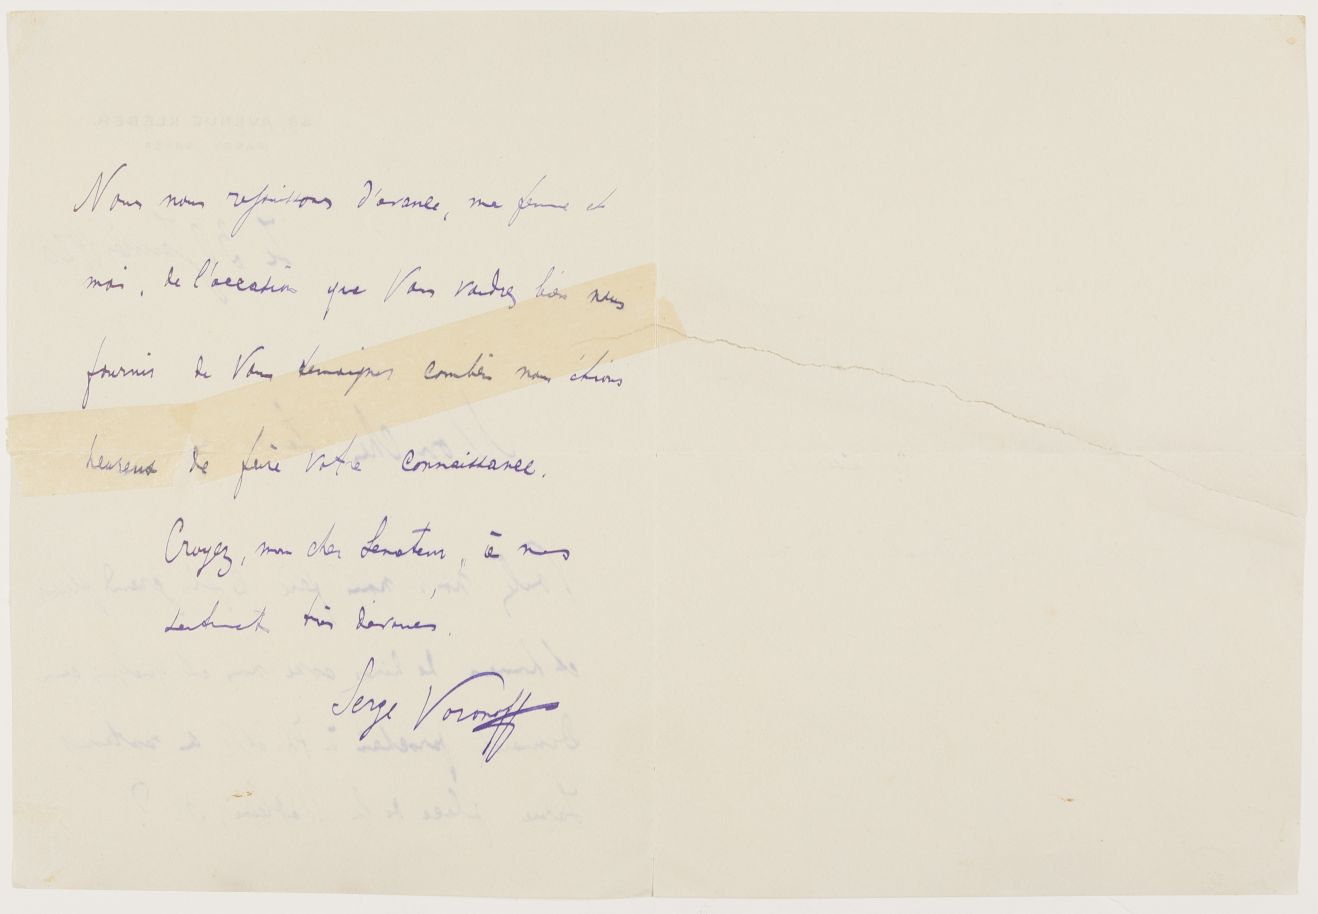 Nous nous rejouissons d'avance, ma femme et
moi, de l'occasion que Vous voudrez bien nous
fournir de Vous temoigner combien nous étions
heureux de faire votre connaissance.
Croyez, mon cher Senateur, à mes
sentiments très dévoués.
Serge Voronoff